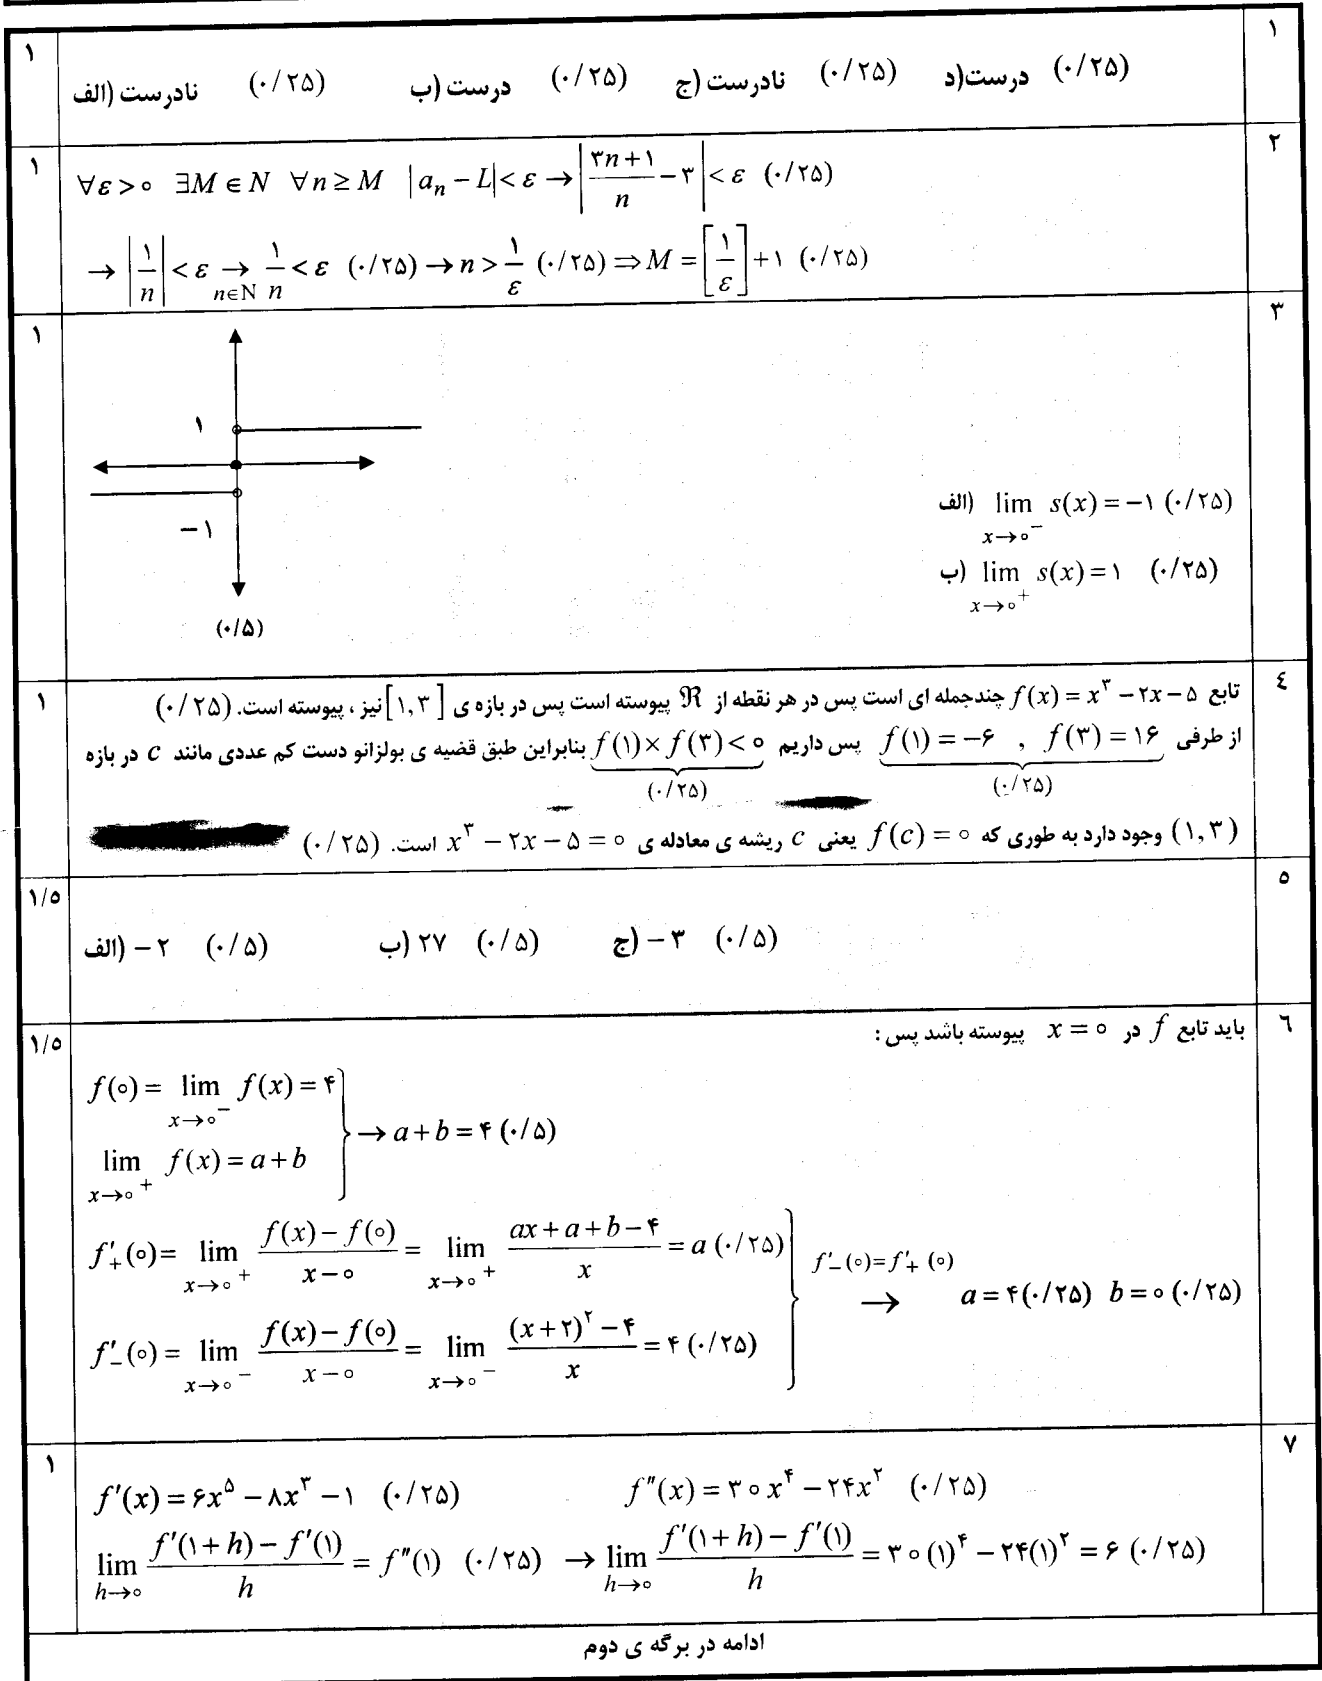 ۱ الف) نادرست (۰/۲۵) ب) درست (۰/۲۵) ج) نادرست (۰/۲۵) د) درست (۰/۲۵) ۱
۲ ∀ε > ∘ ∃M ∈ N ∀n ≥ M |aₙ − L| < ε → |(۳n + ۱)/n − ۳| < ε (۰/۲۵) ۱
→ |۱/n| < ε →_{n∈N} ۱/n < ε (۰/۲۵) → n > ۱/ε (۰/۲۵) ⇒ M = [۱/ε] + ۱ (۰/۲۵)
۳ ۱
۱
−۱
(۰/۵)
الف) lim_{x→∘⁻} s(x) = −۱ (۰/۲۵)
ب) lim_{x→∘⁺} s(x) = ۱ (۰/۲۵)
٤ تابع f(x) = x^۳ − ۲x − ۵ چندجمله ای است پس در هر نقطه از ℜ پیوسته است پس در بازه ی [۱,۳] نیز ، پیوسته است. (۰/۲۵) ۱
از طرفی f(۱) = −۶ , f(۳) = ۱۶ پس داریم f(۱) × f(۳) < ∘ بنابراین طبق قضیه ی بولزانو دست کم عددی مانند c در بازه
(۰/۲۵) (۰/۲۵)
(۱,۳) وجود دارد به طوری که f(c) = ∘ یعنی c ریشه ی معادله ی x^۳ − ۲x − ۵ = ∘ است. (۰/۲۵)
۵ ۱/۵
الف) −۲ (۰/۵) ب) ۲۷ (۰/۵) ج) −۳ (۰/۵)
٦ باید تابع f در x = ∘ پیوسته باشد پس : ۱/۵
f(∘) = lim_{x→∘⁻} f(x) = ۴
lim_{x→∘⁺} f(x) = a + b } → a + b = ۴ (۰/۵)
f′₊(∘) = lim_{x→∘⁺} (f(x) − f(∘))/(x − ∘) = lim_{x→∘⁺} (ax + a + b − ۴)/x = a (۰/۲۵)
f′₋(∘) = f′₊(∘) → a = ۴ (۰/۲۵) b = ∘ (۰/۲۵)
f′₋(∘) = lim_{x→∘⁻} (f(x) − f(∘))/(x − ∘) = lim_{x→∘⁻} ((x + ۲)^۲ − ۴)/x = ۴ (۰/۲۵)
۷ f′(x) = ۶x^۵ − ۸x^۳ − ۱ (۰/۲۵) f″(x) = ۳∘x^۴ − ۲۴x^۲ (۰/۲۵) ۱
lim_{h→∘} (f′(۱ + h) − f′(۱))/h = f″(۱) (۰/۲۵) → lim_{h→∘} (f′(۱ + h) − f′(۱))/h = ۳∘(۱)^۴ − ۲۴(۱)^۲ = ۶ (۰/۲۵)
ادامه در برگه ی دوم